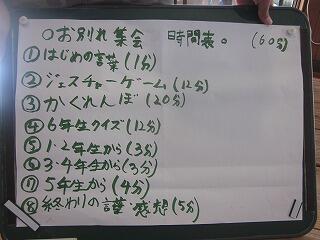 ○お別れ集会 時間表。 (60分)
①はじめの言葉(1分)
②ジェスチャーゲーム(12分)
③かくれんぼ(20分)
④6年生クイズ(12分)
⑤1・2年生から(3分)
⑥3・4年生から(3分)
⑦5年生から(4分)
⑧終わりの言葉・感想(5分)